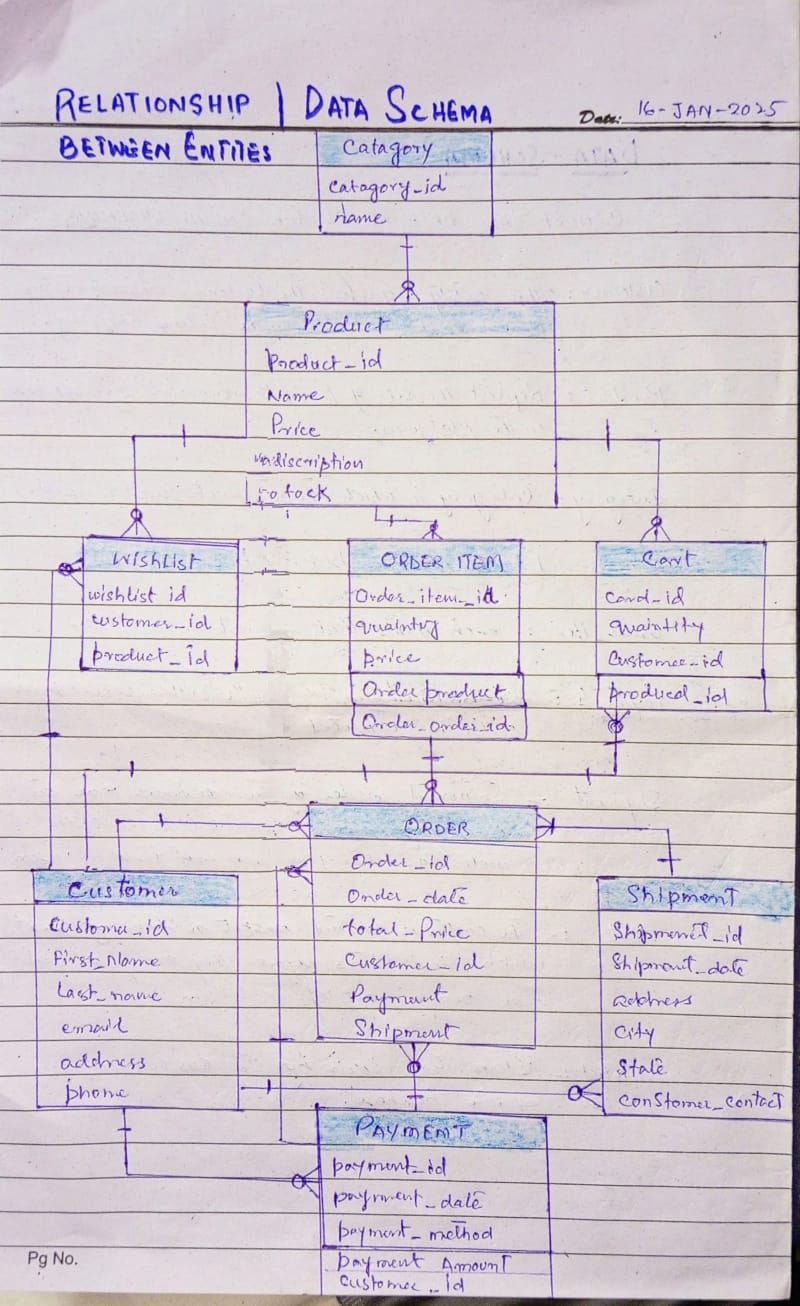 RELATIONSHIP | DATA SCHEMA
Date: 16-JAN-2025
BETWEEN ENTITES
Catagory
Catagory_id
Name
Product
Product_id
Name
Price
discription
WishList
wishlist id
customer_id
product_id
ORDER ITEM
Order_item_id
quaintry
price
Order product
Order_order_id
Cart
Card_id
quaintity
Customer_id
produced_id
ORDER
Order_id
Order_date
total_Price
Customer_id
Payment
Shipment
Customer
Custome_id
First_Name
Last_name
email
address
phone
Shipment
Shipment_id
Shipment_date
address
City
State
conStomer_contact
PAYMENT
payment_id
payment_date
payment_method
payment Amount
Customer_id
Pg No.